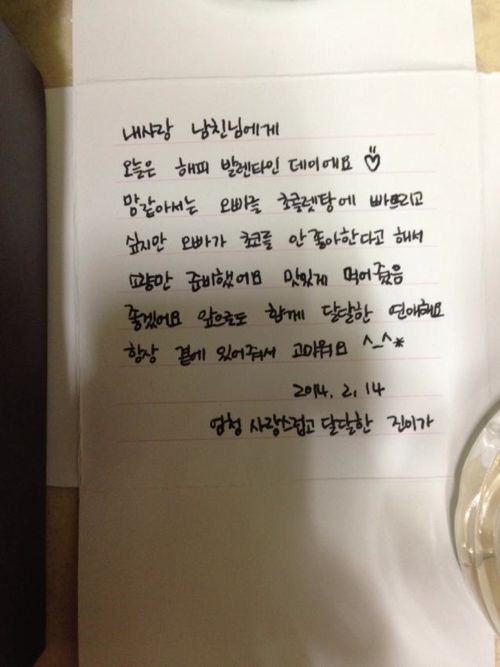 내사랑 남친님에게
오늘은 해피 발렌타인 데이에요
맘같아서는 오빠를 초콜렛탕에 빠뜨리고
싶지만 오빠가 초코를 안좋아한다고 해서
요량만 준비했어요 맛있게 먹어줬음
좋겠어요 앞으로도 함께 달달한 연애해요
항상 곁에 있어줘서 고마워요 ^_^*
2014. 2. 14
엄청 사랑스럽고 달달한 진이가